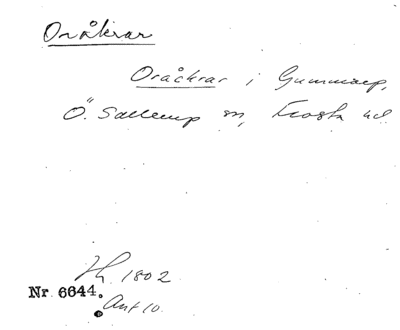 Oråkrar
Oråckrar i Gummarp,
Ö. Sallerup sn, Frosta hd
Nr. 6644.
1802
Akt 10.